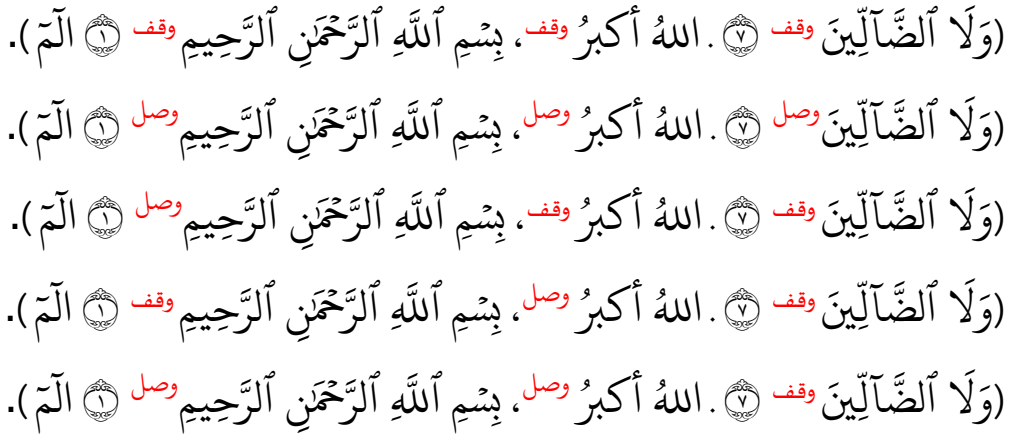 (وَلَا ٱلضَّآلِّينَ وقف ۝٧ . اللهُ أكبرُ وقف، بِسْمِ ٱللَّهِ ٱلرَّحْمَٰنِ ٱلرَّحِيمِ وقف ۝١ الٓمٓ).
(وَلَا ٱلضَّآلِّينَ وصل ۝٧ . اللهُ أكبرُ وصل، بِسْمِ ٱللَّهِ ٱلرَّحْمَٰنِ ٱلرَّحِيمِ وصل ۝١ الٓمٓ).
(وَلَا ٱلضَّآلِّينَ وقف ۝٧ . اللهُ أكبرُ وقف، بِسْمِ ٱللَّهِ ٱلرَّحْمَٰنِ ٱلرَّحِيمِ وصل ۝١ الٓمٓ).
(وَلَا ٱلضَّآلِّينَ وقف ۝٧ . اللهُ أكبرُ وصل، بِسْمِ ٱللَّهِ ٱلرَّحْمَٰنِ ٱلرَّحِيمِ وقف ۝١ الٓمٓ).
(وَلَا ٱلضَّآلِّينَ وقف ۝٧ . اللهُ أكبرُ وصل، بِسْمِ ٱللَّهِ ٱلرَّحْمَٰنِ ٱلرَّحِيمِ وصل ۝١ الٓمٓ).